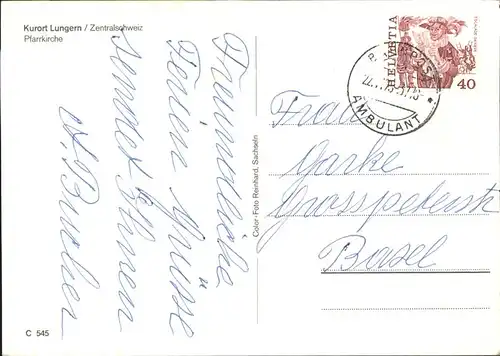 Kurort Lungern / Zentralschweiz
Pfarrkirche
Freundliche
Ferien Grüsse
sendet Ihnen
A. Bucher
C 545
Color-Foto Reinhard, Sachseln
HELVETIA
40
AMBULANT
Frau
Garke
Grosspeterstr
Basel